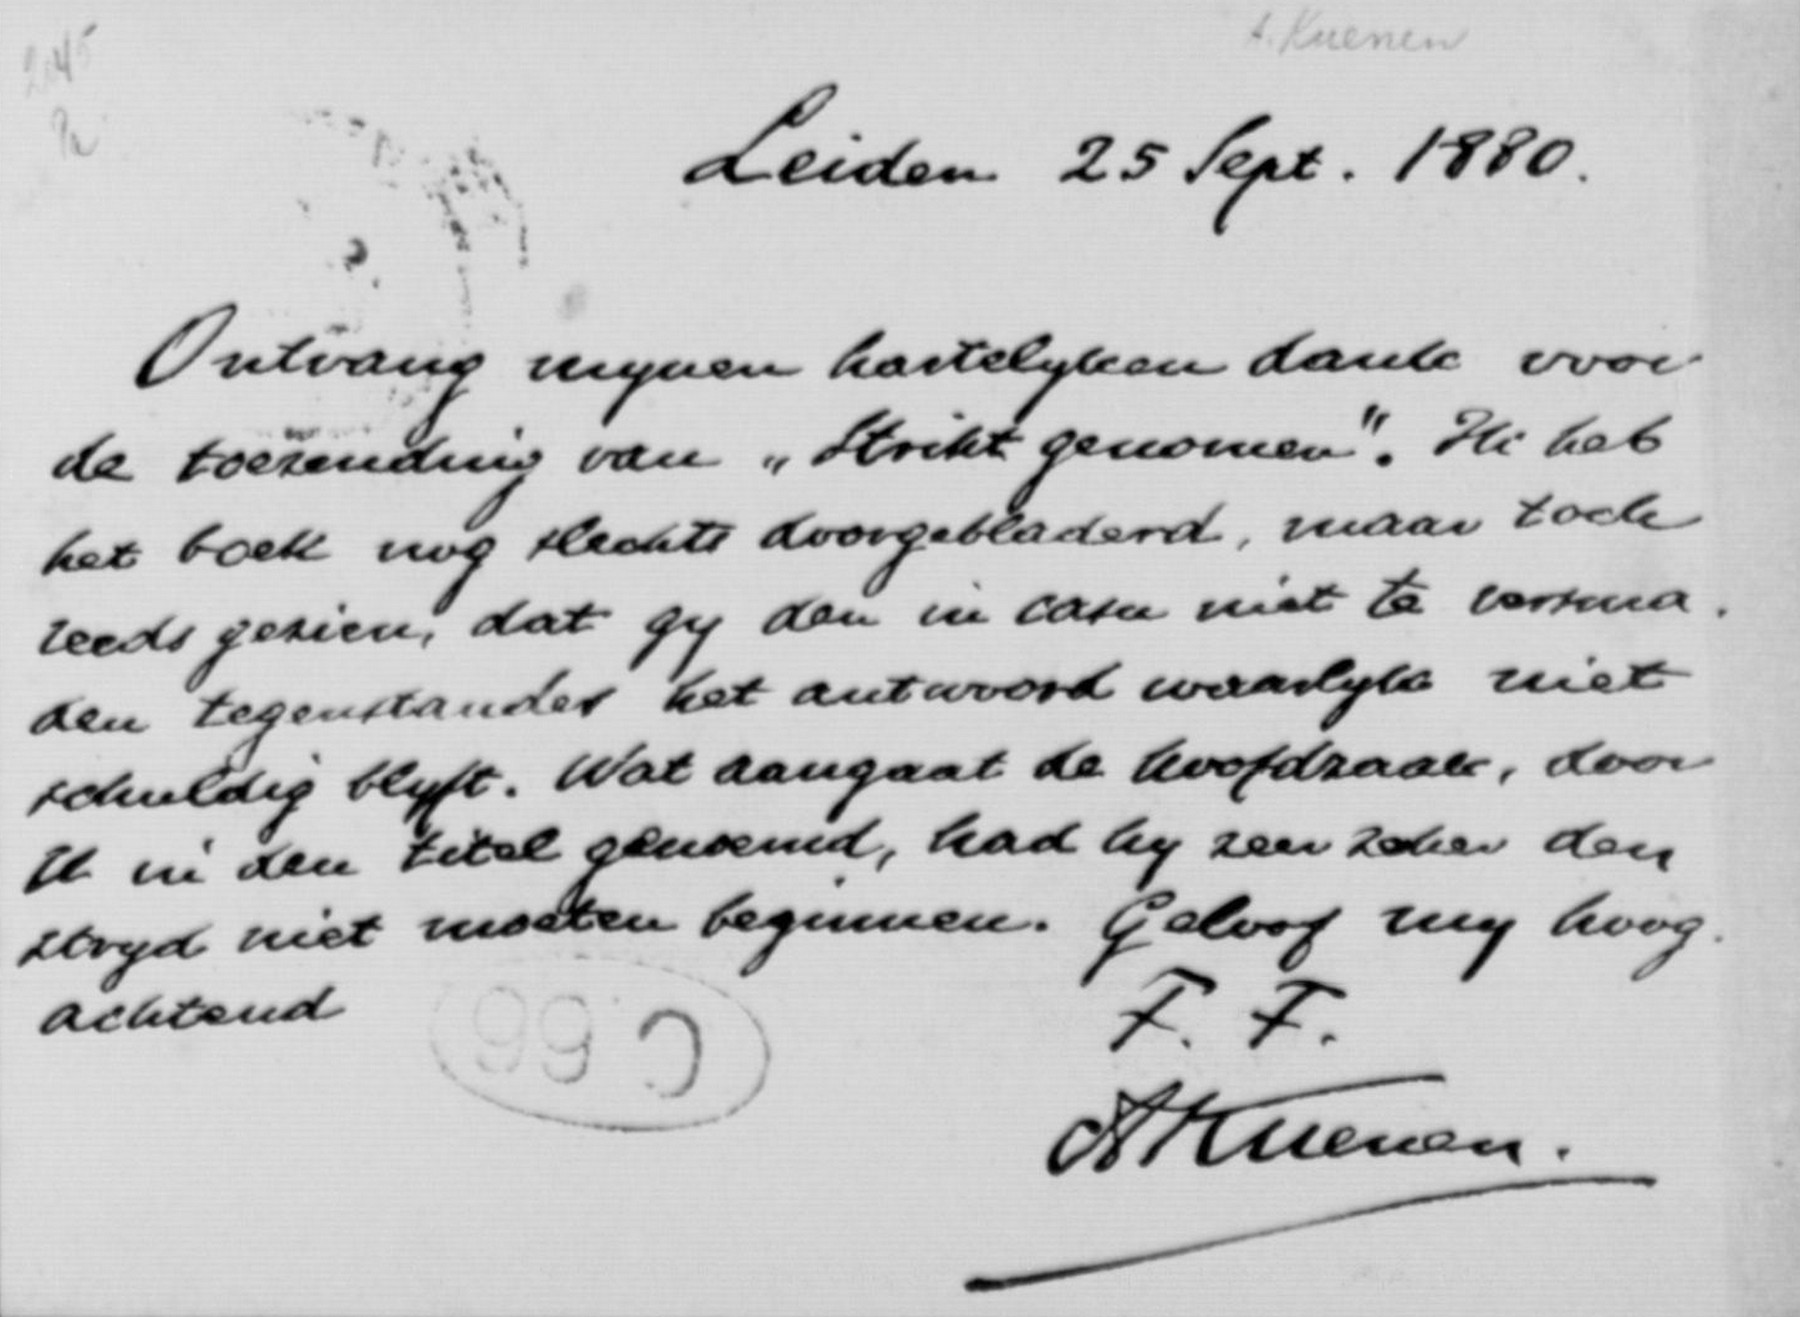 A. Kuenen
Leiden 25 Sept. 1880.
Ontvang mynen hartelyken dank voor
de toezending van „Strikt genomen". Ik heb
het boek nog slechts doorgebladerd, maar toch
reeds gezien, dat gy den in casu niet te versma-
den tegenstander het antwoord waarlyk niet
schuldig blyft. Wat aangaat de hoofdzaak, door
U in den titel genoemd, had hy zeer zeker den
stryd niet moeten beginnen. Geloof my hoog-
achtend
C 66
T. T.
AKuenen.